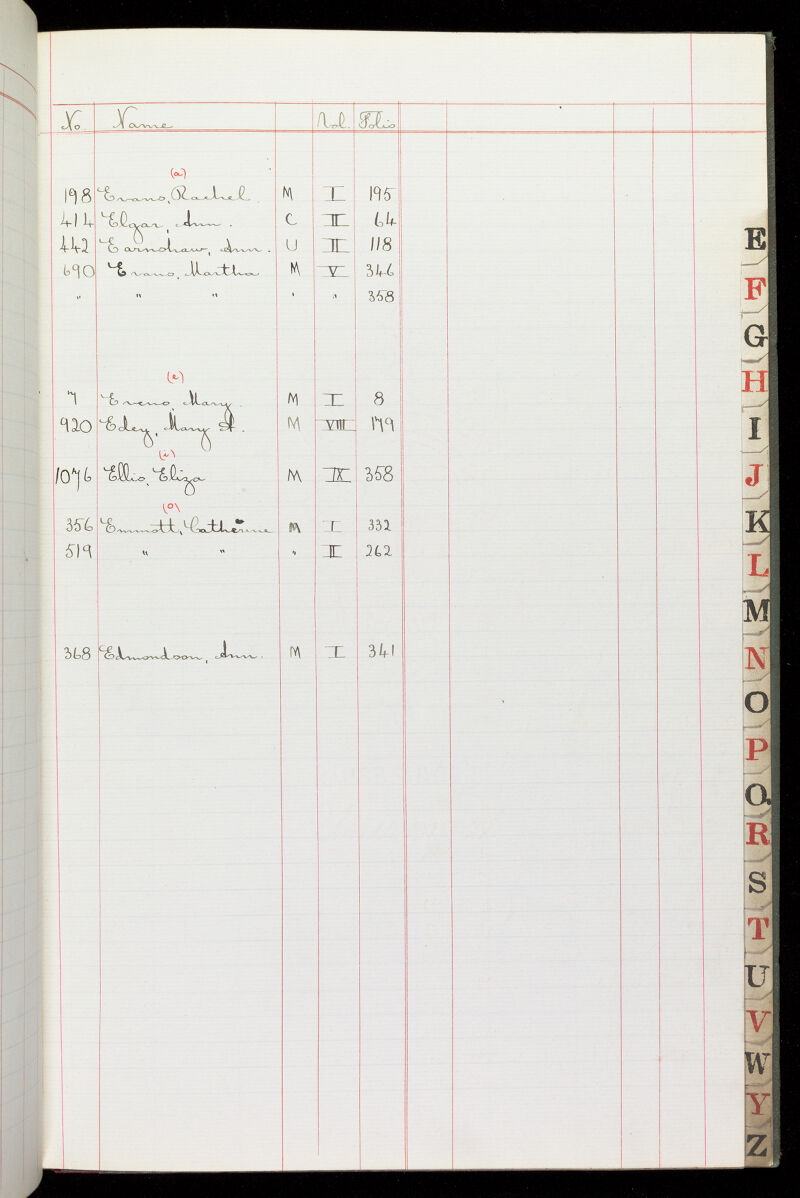 No. Name Vol. Folio
(a)
198 Evans, Rachel. M I 195
414 Elgar, Ann. C II 64
442 Earnshaw, Ann. U II 118
690 Evans, Martha M V 346
" " " " " 358
(e)
7 Evens, Mary. M I 8
920 Edey, Mary A. M VIII 179
(i)
1076 Ellis, Eliza M IX 358
(o)
356 Emmott, Catherine M I 332
519 " " " II 262
368 Edmondson, Ann. M I 341
E
F
G
H
I
J
K
L
M
N
O
P
Q.
R
S
T
U
V
W
Y
Z